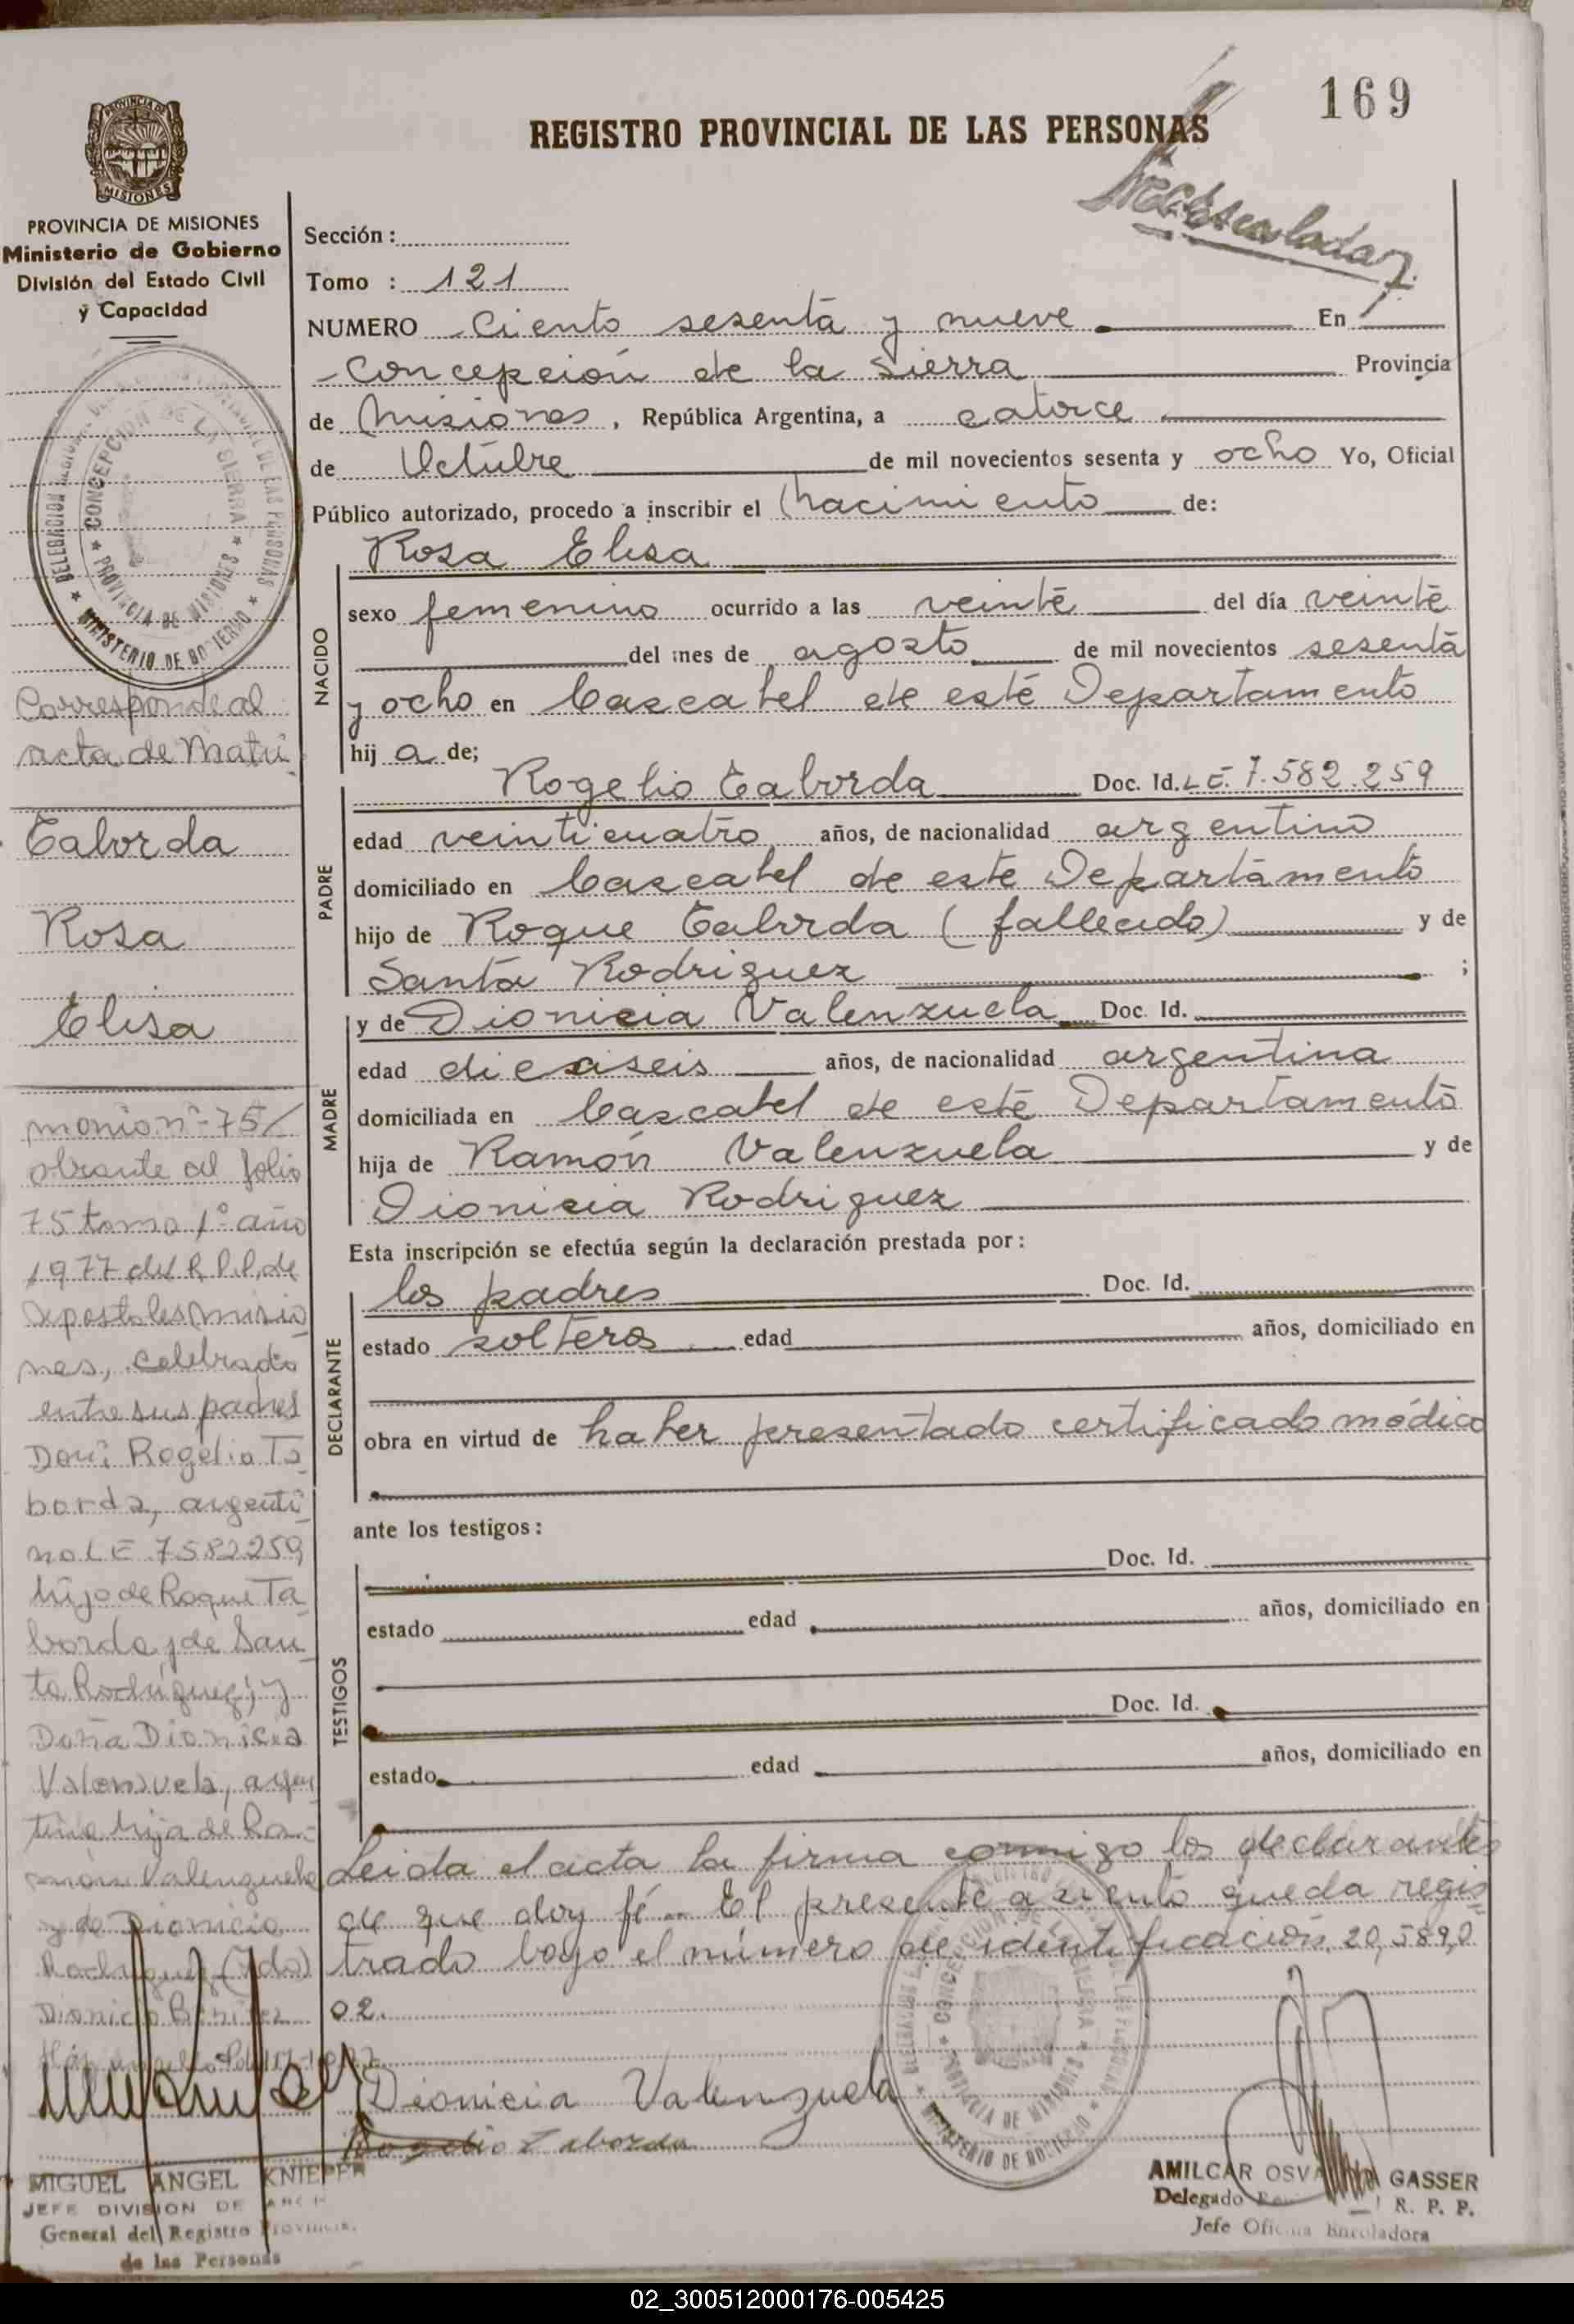 169
REGISTRO PROVINCIAL DE LAS PERSONAS
PROVINCIA DE MISIONES
PROVINCIA DE MISIONES
Ministerio de Gobierno
División del Estado Civil
y Capacidad
Sección:
Tomo : 121
NUMERO Ciento sesenta y nueve En
Concepción de la Sierra Provincia
de Misiones, República Argentina, a catorce
de Octubre de mil novecientos sesenta y ocho Yo, Oficial
Público autorizado, procedo a inscribir el nacimiento de:
Rosa Elisa
NACIDO
sexo femenino ocurrido a las veinte del día veinte
del mes de agosto de mil novecientos sesenta
y ocho en Cascabel de este Departamento
hij a de;
PADRE
Rogelio Taborda Doc. Id. LE. 7.582.259
edad veinticuatro años, de nacionalidad argentino
domiciliado en Cascabel de este Departamento
hijo de Roque Taborda (fallecido) y de
Santa Rodriguez ;
MADRE
y de Dionicia Valenzuela Doc. Id.
edad dieciseis años, de nacionalidad argentina
domiciliada en Cascabel de este Departamento
hija de Ramón Valenzuela y de
Dionicia Rodriguez
Esta inscripción se efectúa según la declaración prestada por:
DECLARANTE
los padres Doc. Id.
estado solteros edad años, domiciliado en
obra en virtud de haber presentado certificado médico
ante los testigos:
TESTIGOS
Doc. Id.
estado edad años, domiciliado en
Doc. Id.
estado edad años, domiciliado en
Leida el acta la firma conmigo los declarantes
de que doy fé.- El presente asiento queda regis
trado bajo el número de identificación, 20,589,0
02.
Dionicia Valenzuela
Rogelio Taborda
DELEGACION DE LAS PERSONAS
CONCEPCION DE LA SIERRA
PROVINCIA DE MISIONES
MINISTERIO DE GOBIERNO
AMILCAR GASSER
Delegado R. P. P.
Jefe Oficina Enroladora
DELEGACION DE LAS PERSONAS
CONCEPCION DE LA SIERRA
PROVINCIA DE MISIONES
MINISTERIO DE GOBIERNO
Corresponde al
acta de Matri
Taborda
Rosa
Elisa
monio nº 75/
obrante al folio
75 tomo 1º año
1977 del R.P.P. de
Apostoles Misio
nes, celebrado
entre sus padres
Don: Rogelio Ta
borda, argenti
no LE 7582259
hijo de Roque Ta
borda y de San
ta Rodríguez; y
Doña Dionicia
Valenzuela, argen
tina hija de Ra-
món Valenzuela
y de Dionicia
Rodriguez
MIGUEL ANGEL KNIEPER
JEFE DIVISION DE
General del Registro Provincial
de las Personas
02_300512000176-005425